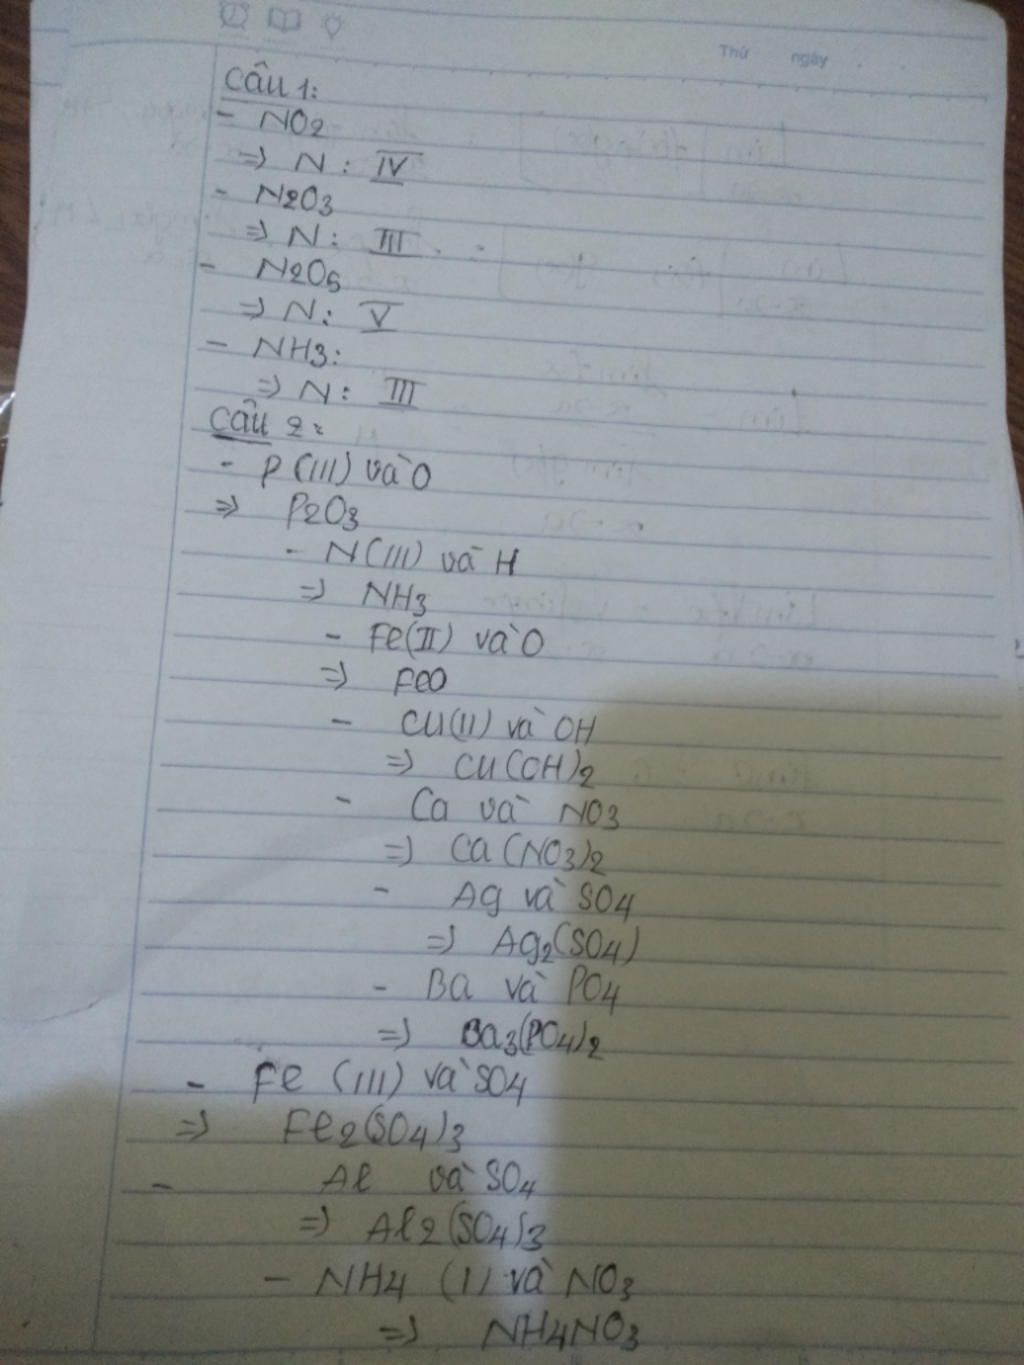 Thứ ngày
Câu 1:
- NO2
=> N: IV
- N2O3
=> N: III
- N2O5
=> N: V
- NH3:
=> N: III
Câu 2:
- P (III) và O
=> P2O3
- N(III) và H
=> NH3
- Fe(II) và O
=> FeO
- Cu(II) và OH
=> Cu(OH)2
- Ca và NO3
=> Ca(NO3)2
- Ag và SO4
=> Ag2(SO4)
- Ba và PO4
=> Ba3(PO4)2
- Fe (III) và SO4
=> Fe2(SO4)3
- Al và SO4
=> Al2(SO4)3
- NH4 (I) và NO3
=> NH4NO3